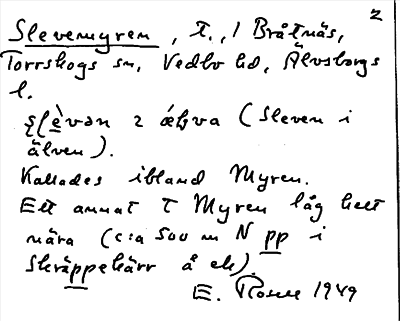 2
Slevemyren, T., / Bråtnäs,
Torrskogs sn, Vedbo hd, Älvsborgs
l.
ʂḷèvən 2 æḷva (Sleven i
älven).
Kallades ibland Myren.
Ett annat T Myren låg helt
nära (c:a 500 m N pp i
Skräppekärr å ek).
E. Rosell 1949